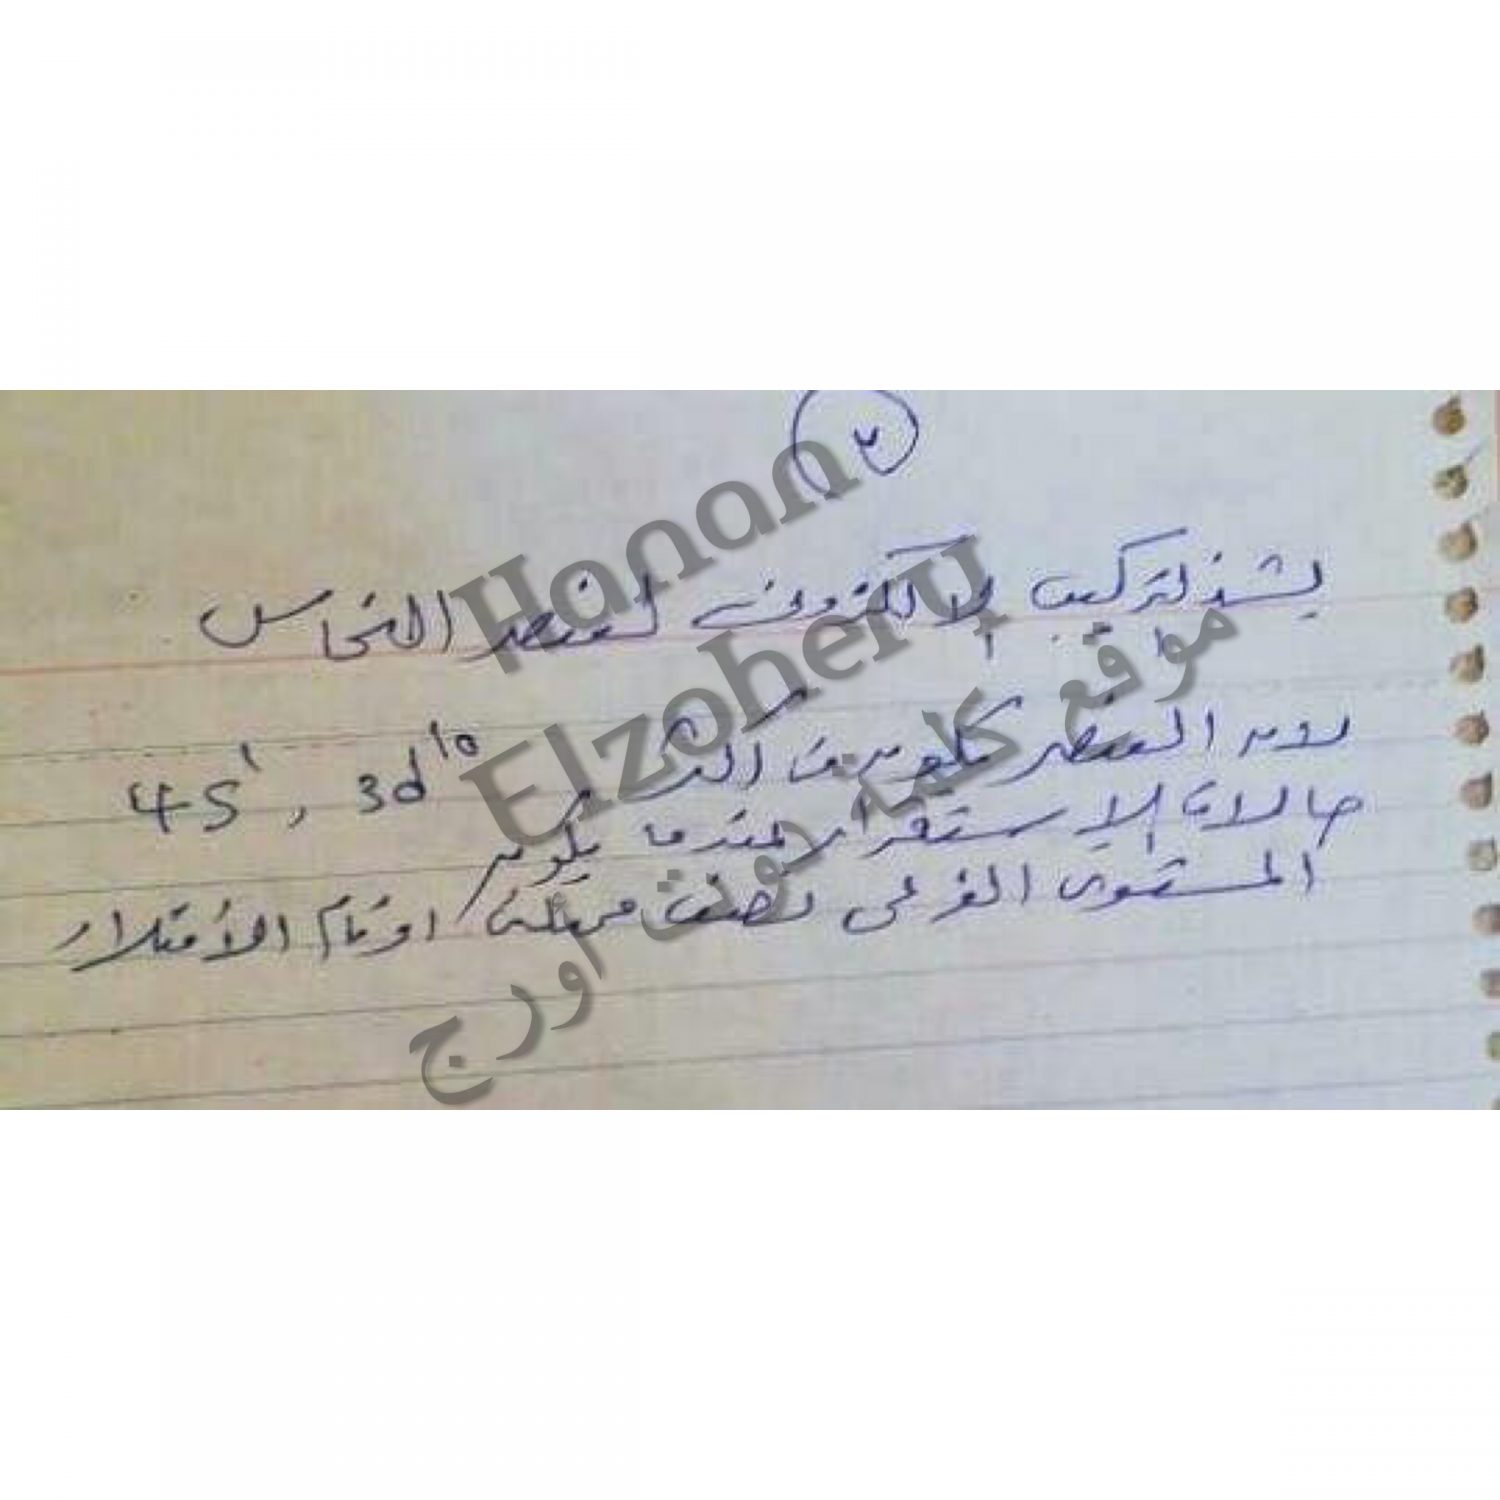 ٢
يشذ التركيب الالكترونى لعنصر النحاس
لان العنصر يكون فى اكثر 4S¹ , 3d¹⁰
حالات الاستقرار عندما يكون
المستوى الفرعى نصف ممتلئ او تام الأمتلاء
Hanan
Elzohery
موقع كلمة دوت اورج